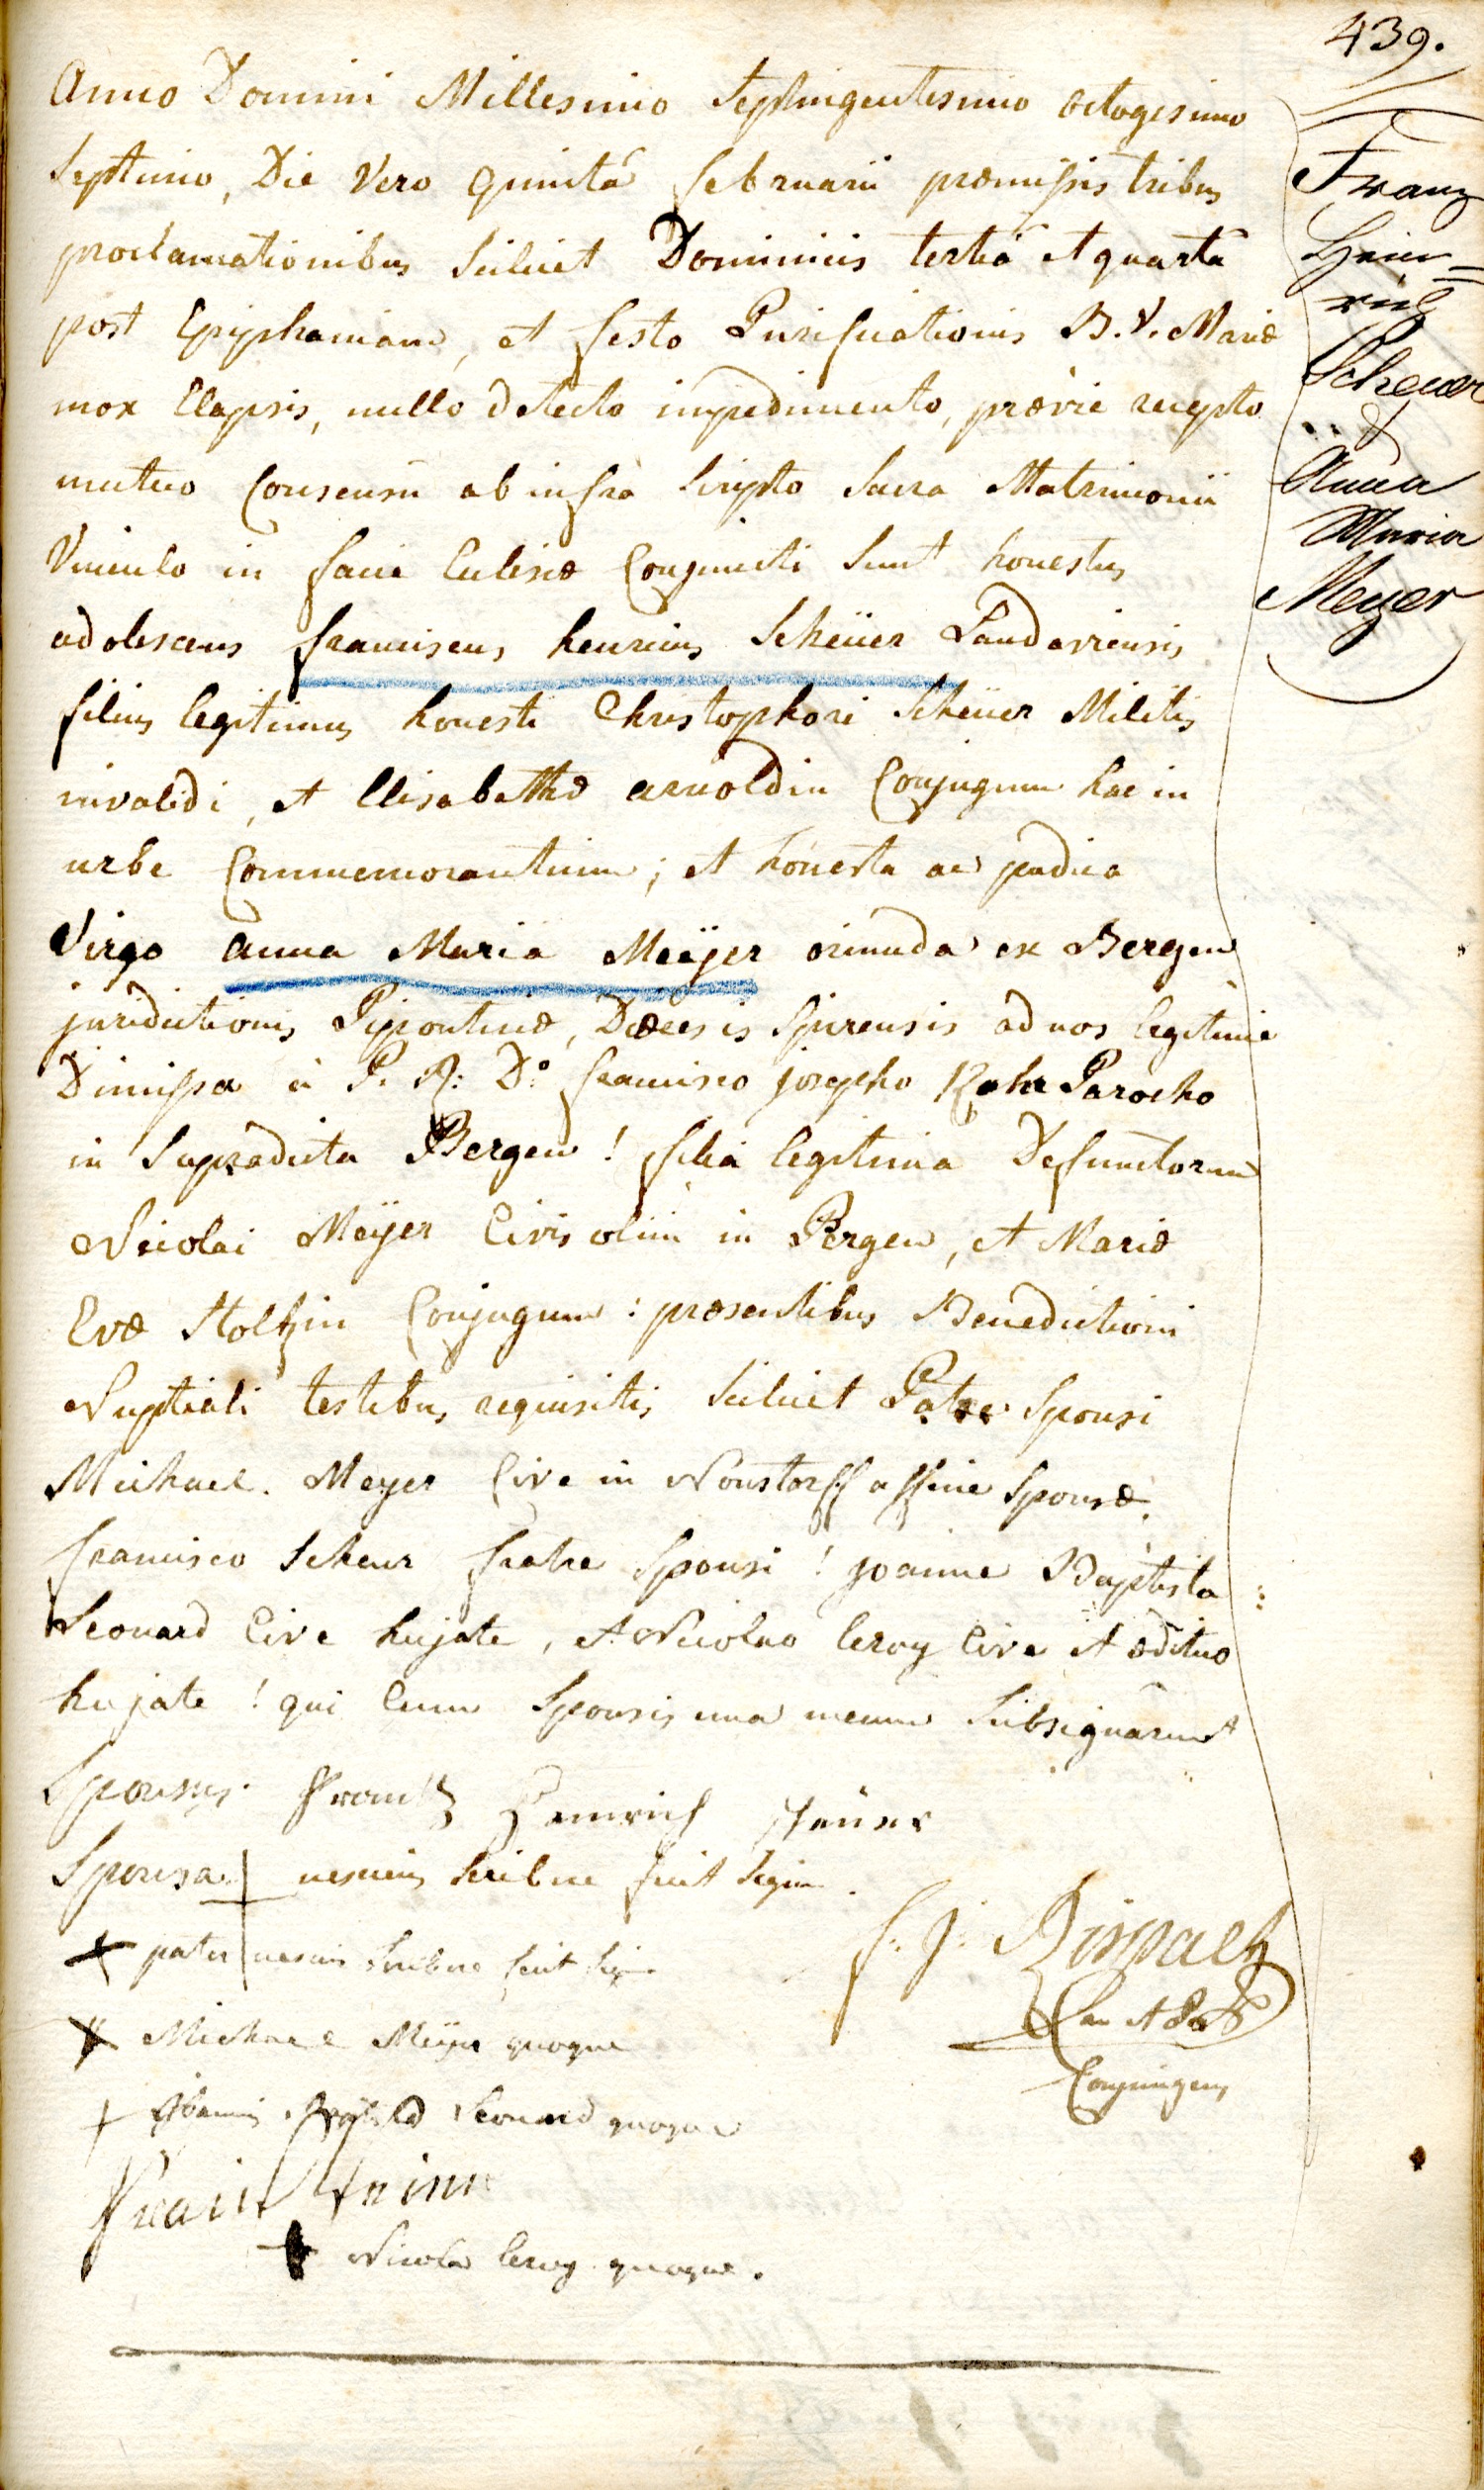 439.
Anno Domini Millesimo Septingentesimo octogesimo
Septimo, Die Vero quintâ februarii præmissis tribus
proclamationibus Scilicet Dominicis tertiâ et quartâ
post Epiphaniam, et festo Purificationis B. V. Mariæ
mox Elapsis, nullo detecto impedimento, prævie recepto
mutuo Consensu ab infra scripto Sacra Matrimonii
Vinculo in facie Eclesiæ Conjuncti Sunt honestus
adolescens franciscus henricus Scheüer Landaviensis
filius legitimus honesti Christophori Scheüer Militis
invalidi, et Elisabethæ arnoldin Conjugum hac in
urbe Commemorantium; et honesta ac pudica
Virgo anna Maria Meÿer oriunda ex Bergen
juridictionis Bipontinæ, Diœcesis Spirensis ad nos legitime
Dimissa à P. R: D.º francisco josepho Parocho
in Supradicta Bergen! filia legitima Defunctorum
Nicolai Meÿer Civis olim in Bergen, et Mariæ
Evæ Stoltzin Conjugum: præsentibus Benedictioni
Nuptiali testibus requisitis Scilicet Patre Sponsi
Michael. Meyer Cive in affine Sponsæ.
francisco Scheur fratre Sponsi! joanne Baptista
Leonard Cive hujate, et Nicolao leroy Cive et ædituo
hujate! qui Cum Sponsis una mecum Subsignârunt
Sponsus. Frantz Heinrich
Sponsa nescius scribere fecit Signum.
pater nescius scribere fecit sig
Michael Meÿer quoque
Leonard quoque
Nicola leroy quoque.
f: J:
Conjungens
Franz
Hein=
rich
Scheuer
&
Anna
Maria
Meyer